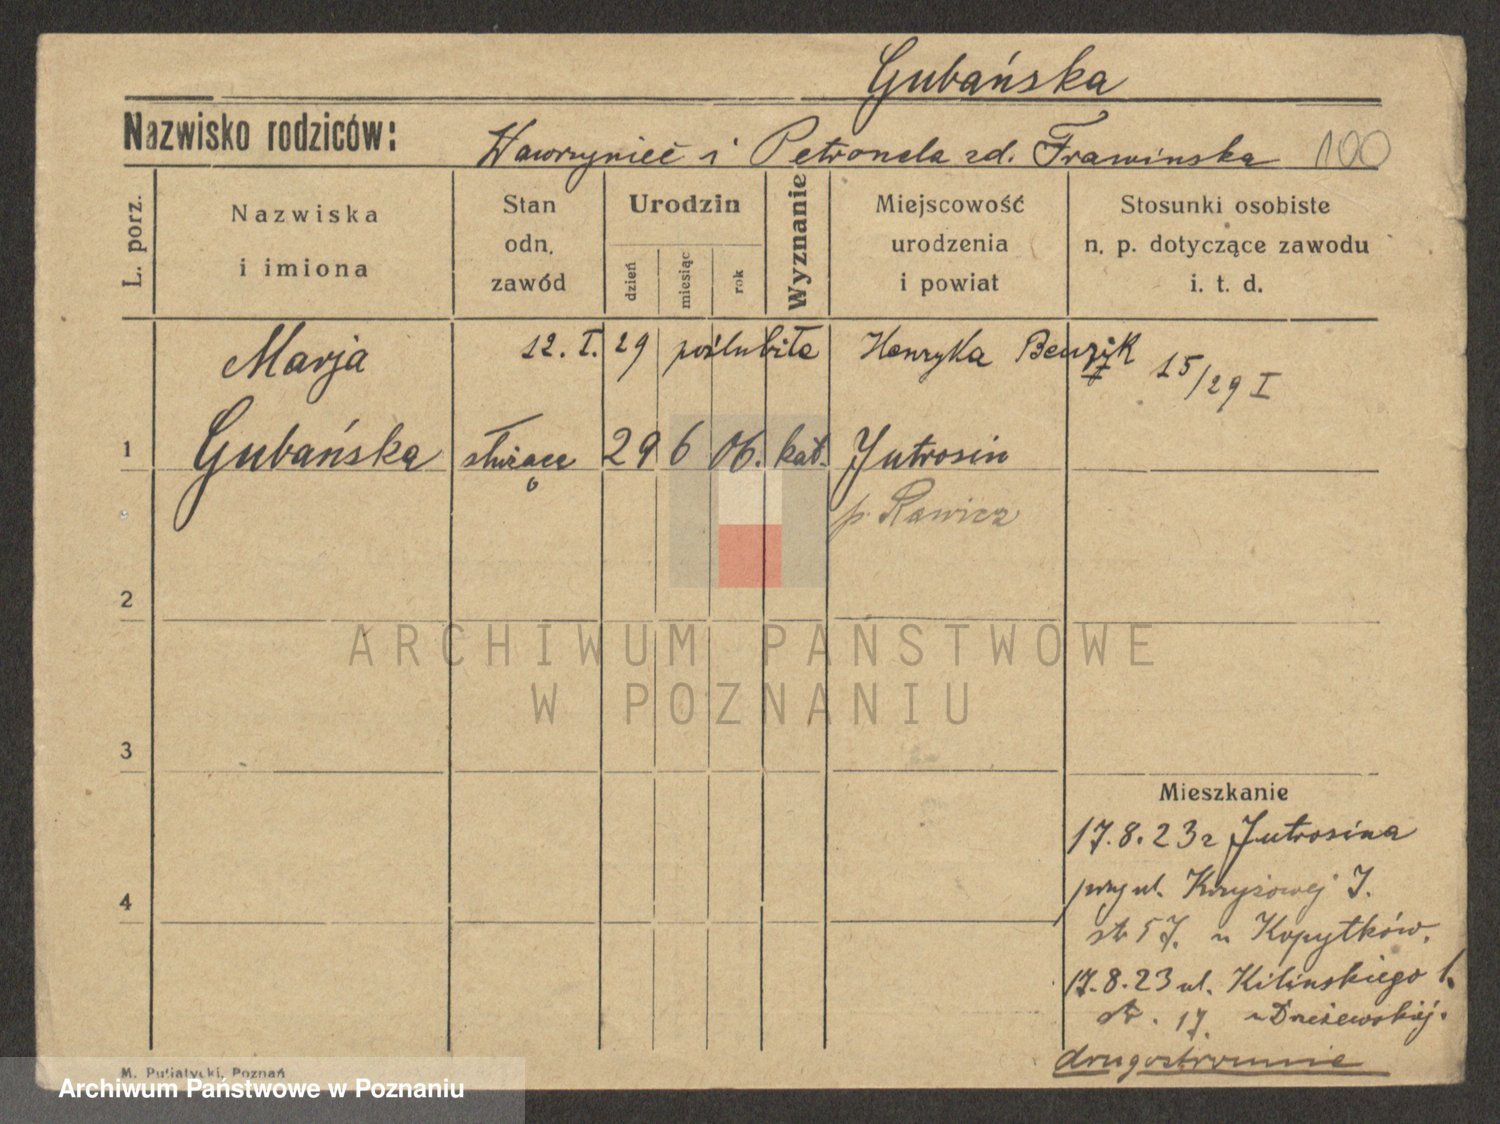 Gubańska
Nazwisko rodziców: Wawrzyniec i Petronela zd. Frawinska 100
L. porz.
Nazwiska i imiona
Stan odn. zawód
Urodzin
dzień
miesiąc
rok
Wyznanie
Miejscowość urodzenia i powiat
Stosunki osobiste n. p. dotyczące zawodu i. t. d.
Marja 12. I. 29 poślubiła Henryka 15/29 I
1 Gubańska służąca 29 6 06. kat. Jutrosin
p. Rawicz
2
ARCHIWUM PAŃSTWOWE
W POZNANIU
3
Mieszkanie
17.8.23 z Jutrosina
4
przy ul. Krzyżowej
u Kopytków.
17.8.23 ul. Kilinskiego
17. u Drzeżewskiej.
drugostronnie
M. Putiatycki, Poznań
Archiwum Państwowe w Poznaniu